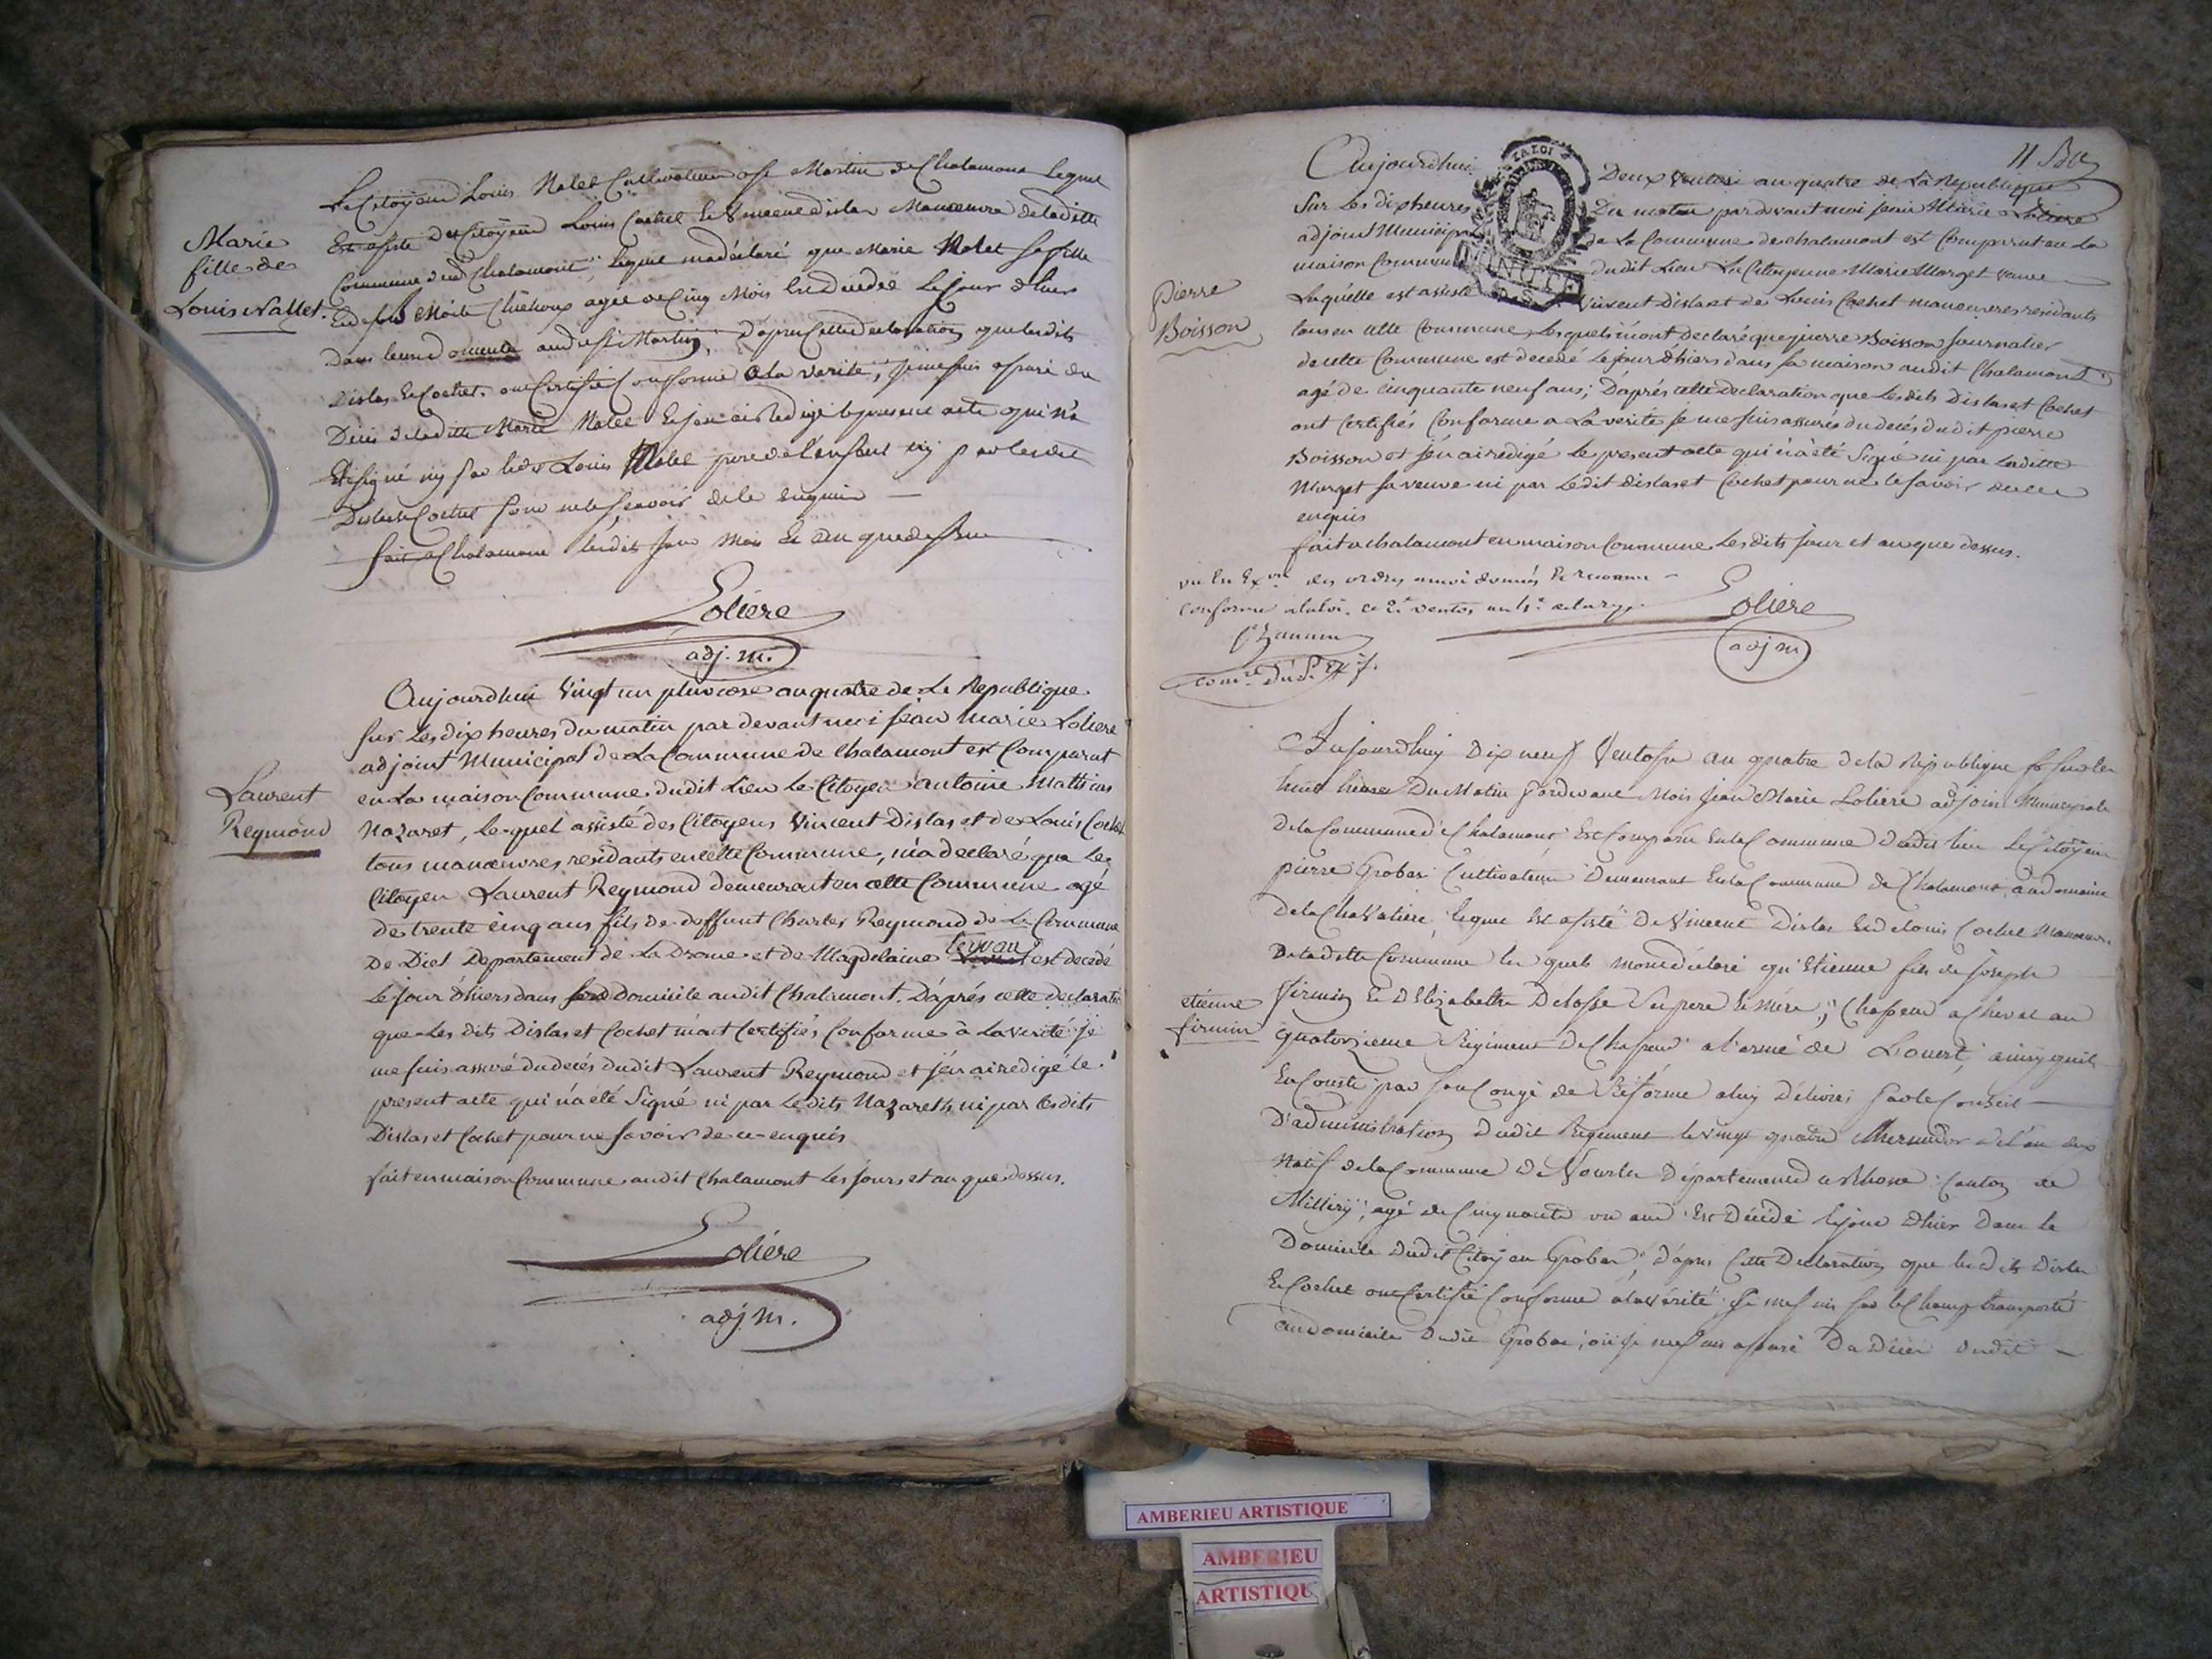 Marie
fille de
Louis Nallet.
Le Citoyen Louis Nalet Cultivateur a St Martin de Chalamont lequel
Est assisté des Citoyens Louis Cochet Et Vincent dislas Manoeuvre de ladite
Commune dudit Chalamont, lequel m'a déclaré que Marie Nalet sa fille
Et de agée de Cinq Mois Est decedée le jour d'hier
dans leur domicile audit St Martin, D'apres Cette declaration que lesdits
Dislas Et Cochet ont Certifié Conforme a la verité, je me suis assuré du
Décès de ladite Marie Nalet Et j'en ai Redigé le present acte qui n'a
Eté signé ny par ledit Louis Nalet pere de l'enfant ny par lesdits
Dislas Et Cochet pour ne le sçavoir de ce enquis
fait a Chalamont lesdits jour Mois Et an que dessus
Loliere
adj. m.
Laurent
Reymond
Aujourdhui vingt un pluviose an quatre de La Republique
sur Les dix heures du matin par devant moi jean Marie Loliere
adjoint Municipal de La Commune de Chalamont est Comparut
en La maison Commune dudit Lieu Le Citoyen antoine Mathieu
Nazaret, Lequel assisté des Citoyens Vincent Dislas et de Louis Cochet
tous manoeuvres residants en cette Commune, m'a declaré que Le
Citoyen Laurent Reymond demeurant en cette Commune agé
de trente cinq ans fils de deffunt Charles Reymond de La Commune
De Diel Departement de La Drome et de Magdelaine est decedé
Le jour d'hier dans son Domicile audit Chalamont. D'aprés cette declaration
que Les dits Dislas et Cochet m'ont Certifiés Conforme à La verité je
me suis assuré du decés dudit Laurent Reymond et j'en ai redigé le
present acte qui n'a été Signé ni par Ledits Nazareth ni par Lesdits
Dislas et Cochet pour ne savoir de ce enquis
fait en maison Commune audit Chalamont Les jours et an que dessus.
Loliere
adj. m.
11 Bis
Pierre
Boisson
Aujourdhui Deux Ventose an quatre de La Republique
Sur Les dix heures Du matin pardevant moi jean Marie Loliere
adjoint Municipal de La Commune de chalamont est Comparut en La
maison Commune dudit Lieu La Citoyenne Marie Marget veuve
Laquelle est assisté Vincent Dislas et de Louis Cochet manoeuvres residants
tous en cette Commune, Lesquels m'ont declaré que pierre Boisson journalier
de cette Commune est decedé Le jour d'hiers dans sa maison audit Chalamont
agé de cinquante neuf ans; D'aprés cette declaration que Lesdits Dislas et Cochet
ont Certifiés Conforme a La verité je me suis assurés du decés dudit pierre
Boisson et j'en ai redigé Le present acte qui n'a été Signé ni par Ladite
Marget sa veuve ni par Ledit dislas et Cochet pour ne le savoir de ce
enquis
fait a chalamont en maison Commune Les dits jour et an que dessus.
vu En Exon des ordres a moi donnés Et reconnu
conforme a la loi. ce 2e ventos an 4e de la rep.
Loliere
adj m
etienne
firmin
Aujourdhuy Dix neuf Ventose an quatre de la République sur les
huit heures Du Matin Pardevant Moi Jean Marie Loliere adjoint Municipale
de la Commune de Chalamont Est Comparu En la Commune dudit lieu Le Citoyen
pierre Grobas Cultivateur Demeurant En la Commune de Chalamont au domaine
de la Chavatiere, lequel Est assisté De Vincent Dislas Et de Louis Cochet Manoeuvre
De ladite Commune les quels m'ont déclaré qu'Etienne fils de Joseph
firmin Et D'Elizabeth Delosse Ses pere Et Mere, Chasseur a cheval au
quatorzieme Régiment De Chasseur a l'armé de Louest, ainsy quil
En Conste par son Congé de Réforme a luy Délivré par le Conseil
D'administration Dudit Regiment le vingt quatre thermidor de l'an deux
Natif de la Commune De Vourles Département du Rhone Canton de
Millery, agé de Cinquante un ans Est Décédé le jour d'hier Dans le
Domicile dudit Citoyen Grobas, D'apres Cette Declaration que lesdits Dislas
Et Cochet ont Certifié Conforme a la Vérité Je me suis sur le Champ transporté
au domicile Dudit Grobas, où je me suis assuré Du Décés dudit
AMBERIEU ARTISTIQUE
AMBERIEU
ARTISTIQU